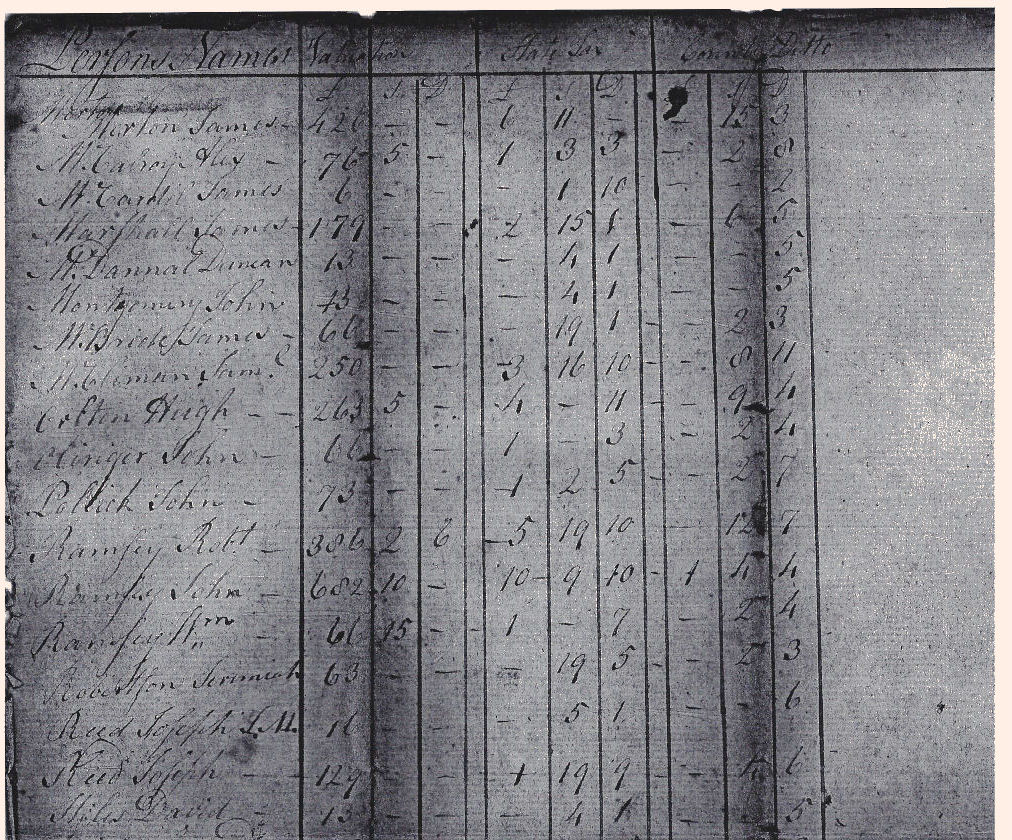 Persons Names Valuation State Tax County Ditto
£ S D £ S D S D
Morton James - 426 - - 6 11 - - 15 3
McCalroy Alex - 76 5 - 1 3 3 - 2 8
James 6 - - - 1 10 - - 2
Marshall James - 179 - - 2 15 1 - 6 5
McDannal Duncan 13 - - - 4 1 - 5
Montgomery John 43 - - - 4 1 5
McBride James - 66 - - - 19 1 - - 2 3
250 - - 3 16 10 - - 8 11
Hugh - - 263 5 - 4 - 11 - - 9 4
John - 66 - - 1 - 3 - 2 4
Pollick John - 73 - - 1 2 5 - 2 7
Ramsey Robt - 386 2 6 5 19 10 - 12 7
Ramsey John - 682 10 - 10 - 9 10 - 1 4 4
Ramsey Wm - 61 15 - 1 - 7 - 2 4
Robertson Jerimiah 63 - - - 19 5 - - 2 3
Reed Joseph S.M. 16 - - - 5 1 - - 6
Reed Joseph - 129 - - 1 19 9 - - 4 6
Stiles David - 13 - - - 4 1 - - 5